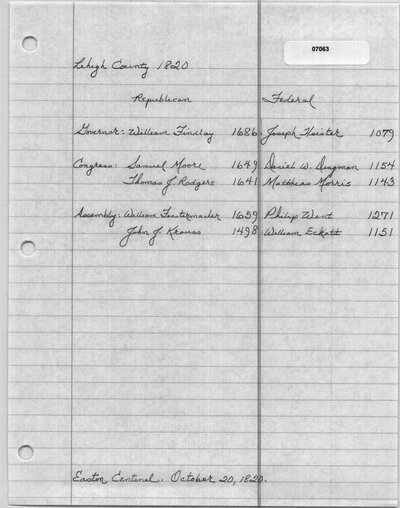 07063
Lehigh County 1820
Republican Federal
Governor: William Findlay 1686 Joseph Heister 1079
Congress: Samuel Moore 1649 Daniel W. Dingman 1154
Thomas J. Rodgers 1641 Matthias Morris 1143
Assembly: William Fenstermacher 1659 Philip Went 1271
John J. Krauss 1498 William Eckett 1151
Easton Centinel. October 20, 1820.